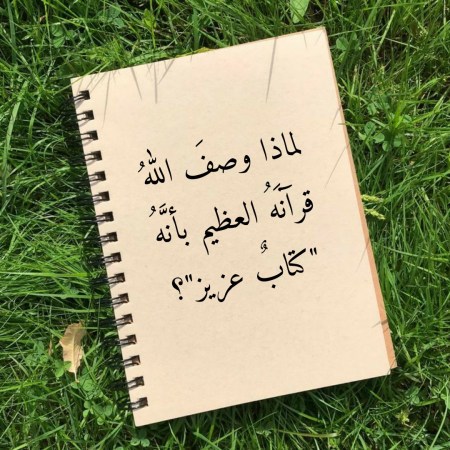 لماذا وصفَ اللهُ
قرآنَهُ العظيم بأنَّهُ
"كتابٌ عزيز"؟